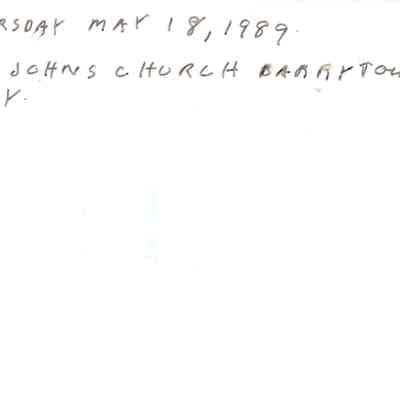 RSDAY MAY 18, 1989.
JOHNS CHURCH BARRYTOW
Y.